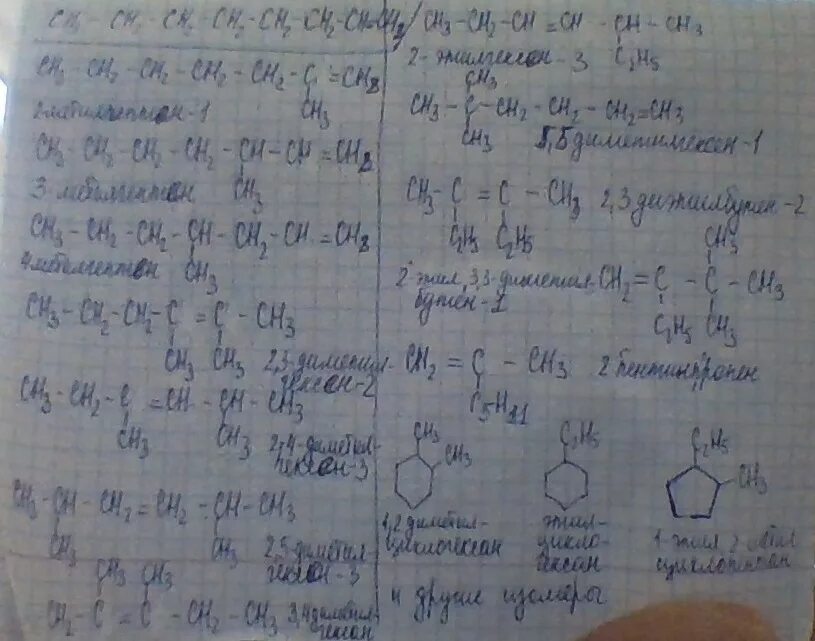 CH3 – CH2 – CH2 – CH2 – CH2 – CH2 – CH=CH2
CH3 – CH2 – CH2 – CH2 – CH2 – C = CH2
CH3
2 метилгептен-1
CH3 – CH2 – CH2 – CH2 – CH – CH = CH2
CH3
3 метилгептен
CH3 – CH2 – CH2 – CH – CH2 – CH = CH2
CH3
4 метилгептен
CH3 – CH2 – CH2 – C = C – CH3
CH3 CH3
2,3-диметил-
гексен-2
CH3 – CH2 – C = CH – CH – CH3
CH3 CH3
2,4-диметил-
гексен-3
CH3 – CH – CH2 = CH2 – CH – CH3
CH3 CH3
2,5-диметил-
гексен-3
CH3 CH3
CH3 – C = C – CH2 – CH3
3,4 диметил-
гексен
CH3 – CH2 – CH = CH – CH – CH3
C2H5
2-этилгексен-3
CH3
CH3 – C – CH2 – CH2 – CH2 = CH3
CH3
5,5 диметилгексен-1
CH3 – C = C – CH3
C2H5 C2H5
2,3 диэтилбутен-2
CH3
CH2 = C – C – CH3
C2H5 CH3
2 этил, 3,3-диметил-
бутен-1
CH2 = C – CH3
C5H11
2 пентинпропен
CH3
CH3
1,2 диметил-
циклогексан
C2H5
этил-
цикло-
гексан
C2H5
CH3
1-этил 2 метил
циклопентан
и другие изомеры